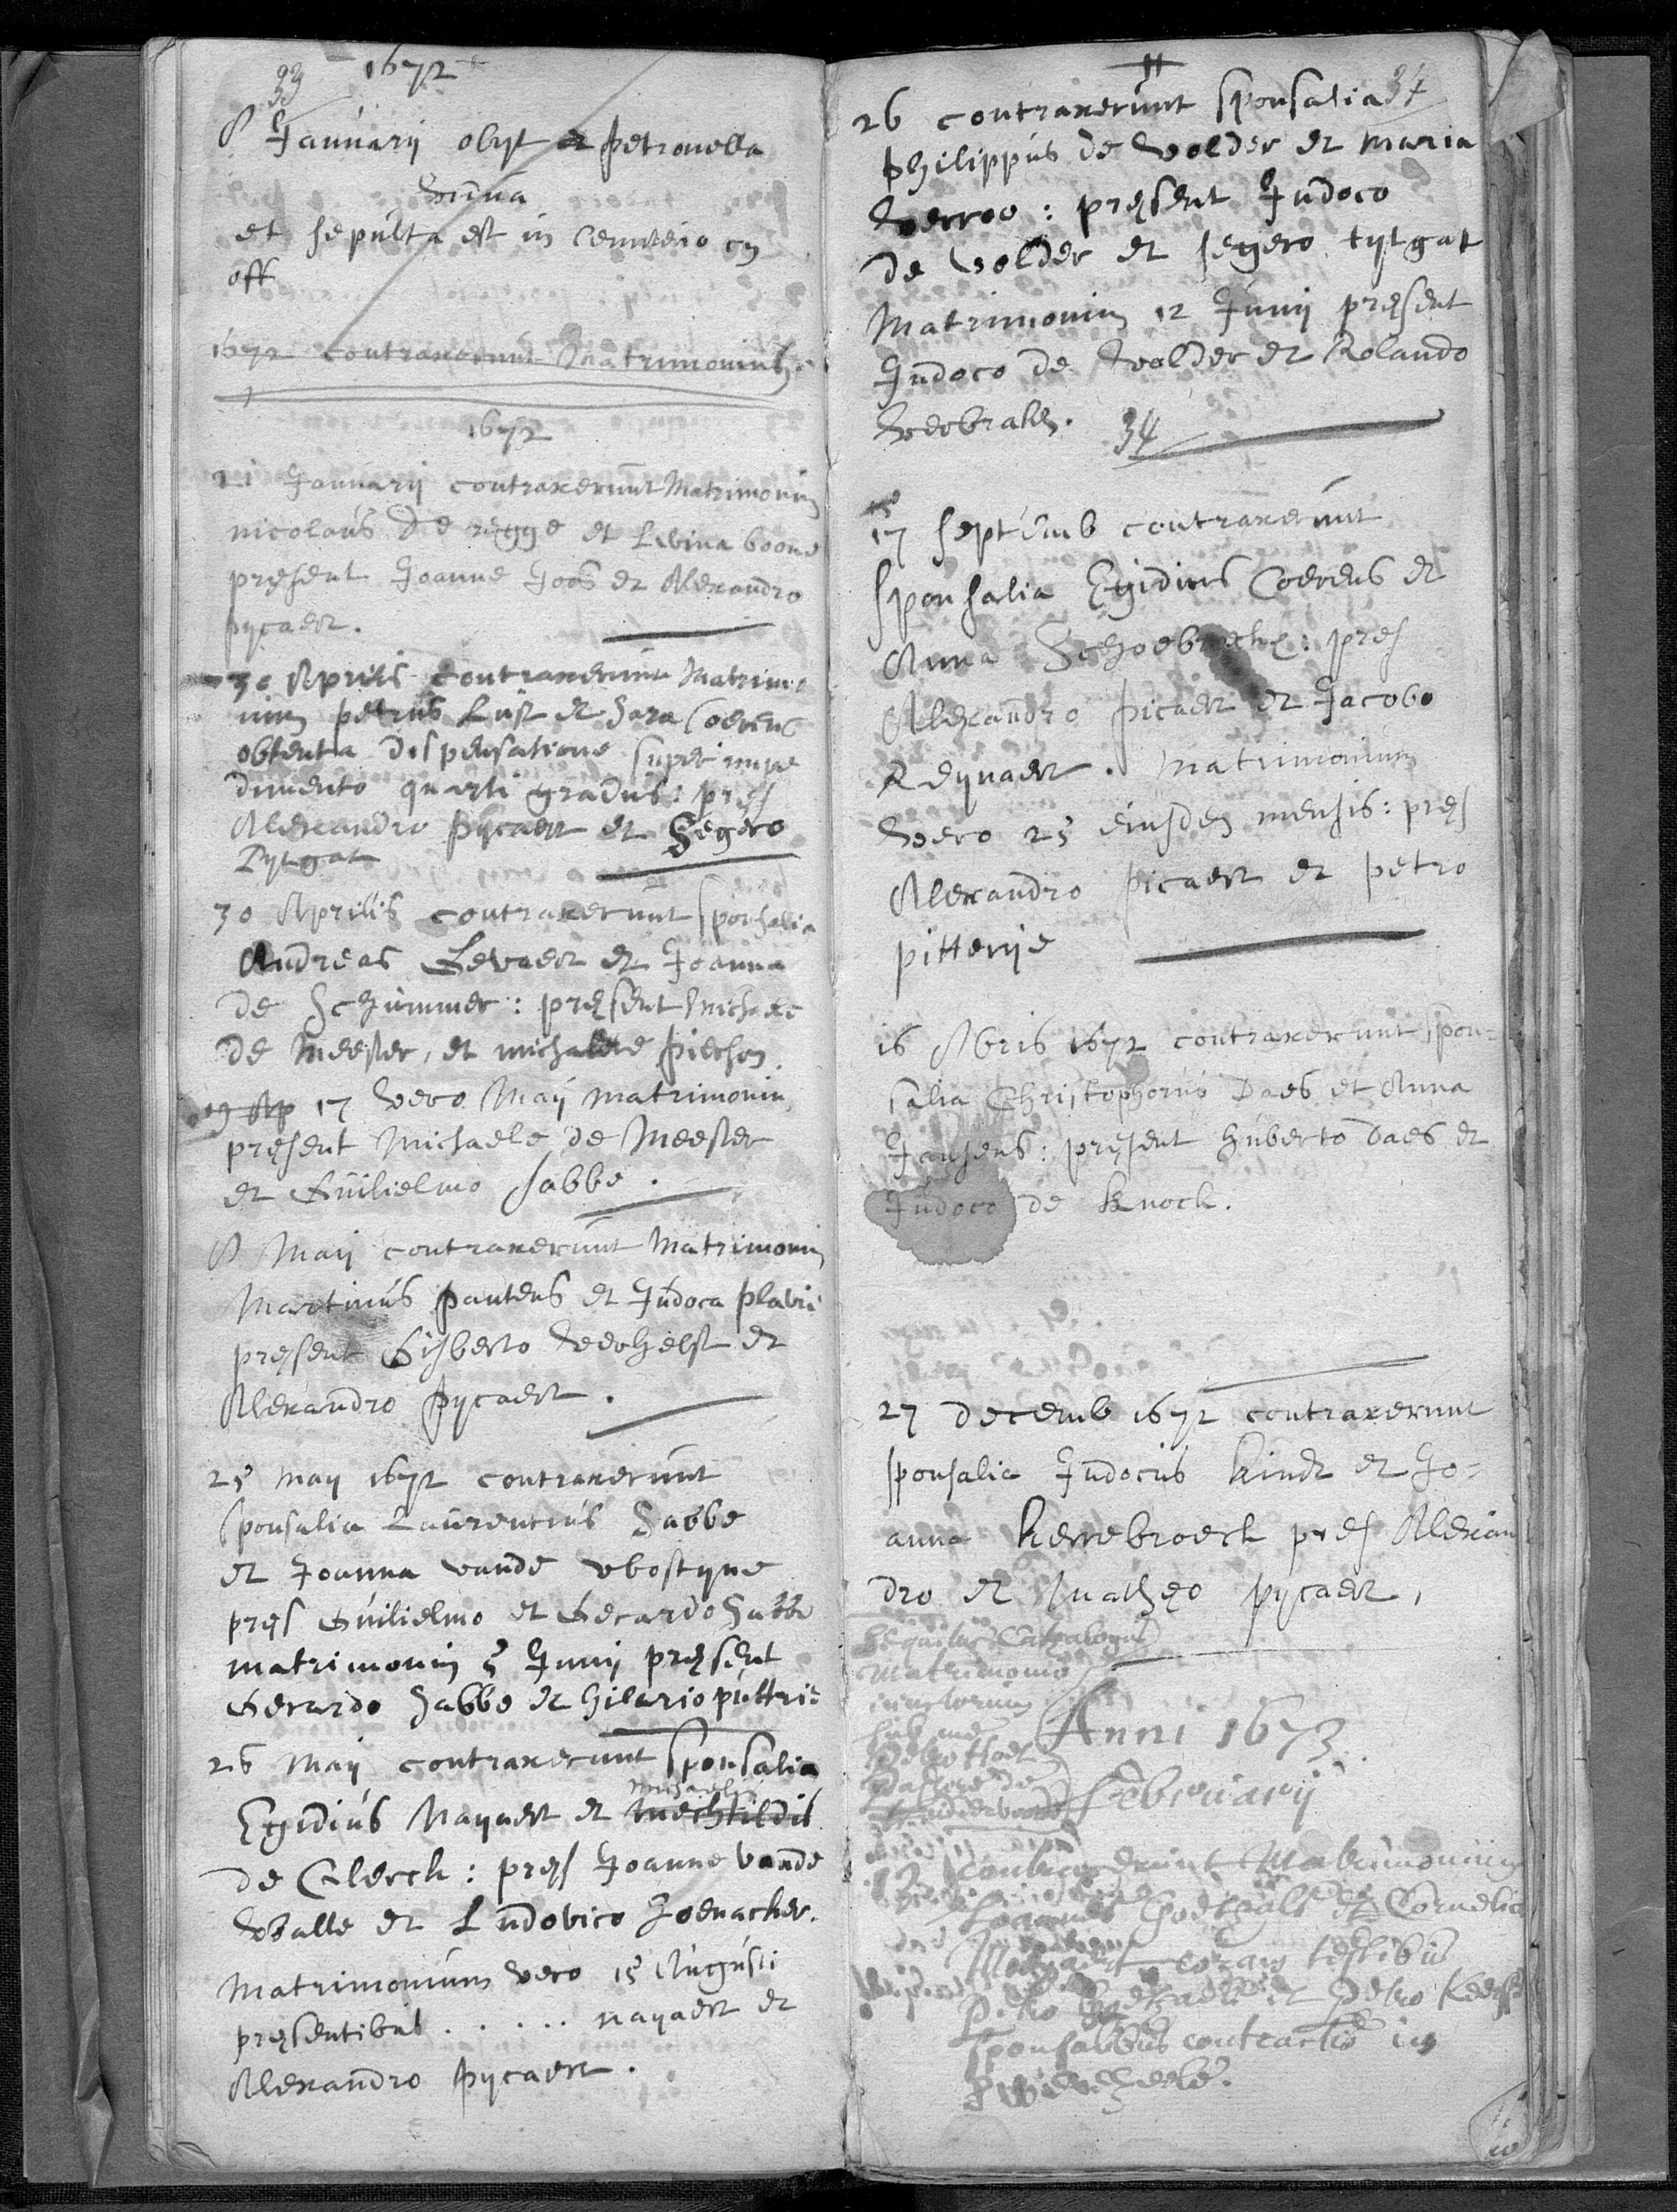 33 1672
8 Januarij obijt et petronella
vidua
et sepulta est in Cemiterio cū
off
1672 contraxerunt Matrimoniū
1672
21 Januarij contraxerunt Matrimoniū
nicolaus de rigge et Livina boone
present Joanne Joos et Alexandro
pycaert.
30 Aprilis contraxerunt Matrimo
niū petrus Lust et Sara Coerens
obtenta dispensatione super impe
dimento quarti gradus: pres
Alexandro pycaert et Segero
Tytgat
30 Aprilis contraxerunt sponsalia
Andreas Gevaert et Joanna
de Schimmer: present Michaele
de Meester, et michaele pierson
17 vero Maij matrimoniū
present Michaele de Meester
et Guilielmo sabbe.
8 Maij contraxerunt Matrimoniū
Martinus pauwens et Judoca
present Gisberto Verhelst et
Alexandro pycaert.
25 maij 1672 contraxerunt
sponsalia Laurentius Sabbe
et Joanna vande vbostyne
pres Guilielmo et Gerardo Sabbe
matrimoniū 5 Junij present
Gerardo Sabbe et hilario
26 Maij contraxerunt sponsalia
michaelis
Egidius Nayaert et mechtildis
de Clerck: pres Joanne vande
Walle et Ludovico Zoenacker.
Matrimonium vero 15 Augusti
presentibus ..... nayaert et
Alexandro pycaert.
34
26 contraxerunt sponsalia
philippus de volder et maria
verroo: present Judoco
de volder et segero tytgat
Matrimoniū 12 Junij present
Judoco de volder et Rolando
verbraken.
34
17 septemb contraxerunt
sponsalia Egidius Coerens et
Anna: pres
Alexandro picaert et Jacobo
Reynaert. Matrimonium
vero 25 eiusdem mensis: pres
Alexandro picaert et petro
pitterije
16 8bris 1672 contraxerunt spon-
salia Christophorus Daes et Anna
Jansens: present huberto Daes et
Judoco de knock.
27 decemb 1672 contraxerunt
sponsalia Judocus kindt et Jo-
anna kerrebroeck pres Alexan
dro et Matheo pycaert,
sequitur Cathalogus
Matrimonio
iunctorum
sub me
Petro
pastore de
Anni 1673
Februarij
12 contraxerunt Matrimonium
Joannes Goethals et Cornelia
coram testibus
Petro Goethals et Petro
sponsalibus contractis in